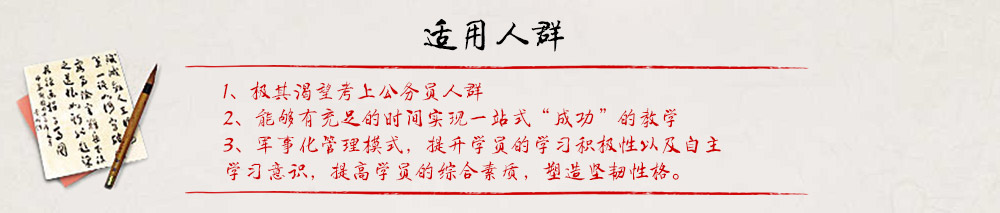 适用人群
1、极其渴望考上公务员人群
2、能够有充足的时间实现一站式“成功”的教学
3、军事化管理模式，提升学员的学习积极性以及自主
学习意识，提高学员的综合素质，塑造坚韧性格。